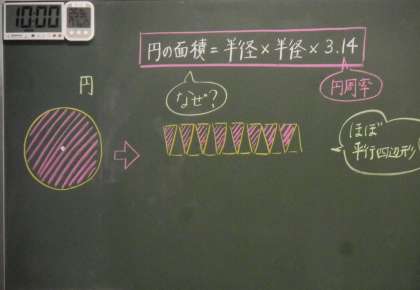 10:00
円の面積=半径×半径×3.14
円周率
なぜ?
円
ほぼ
平行四辺形